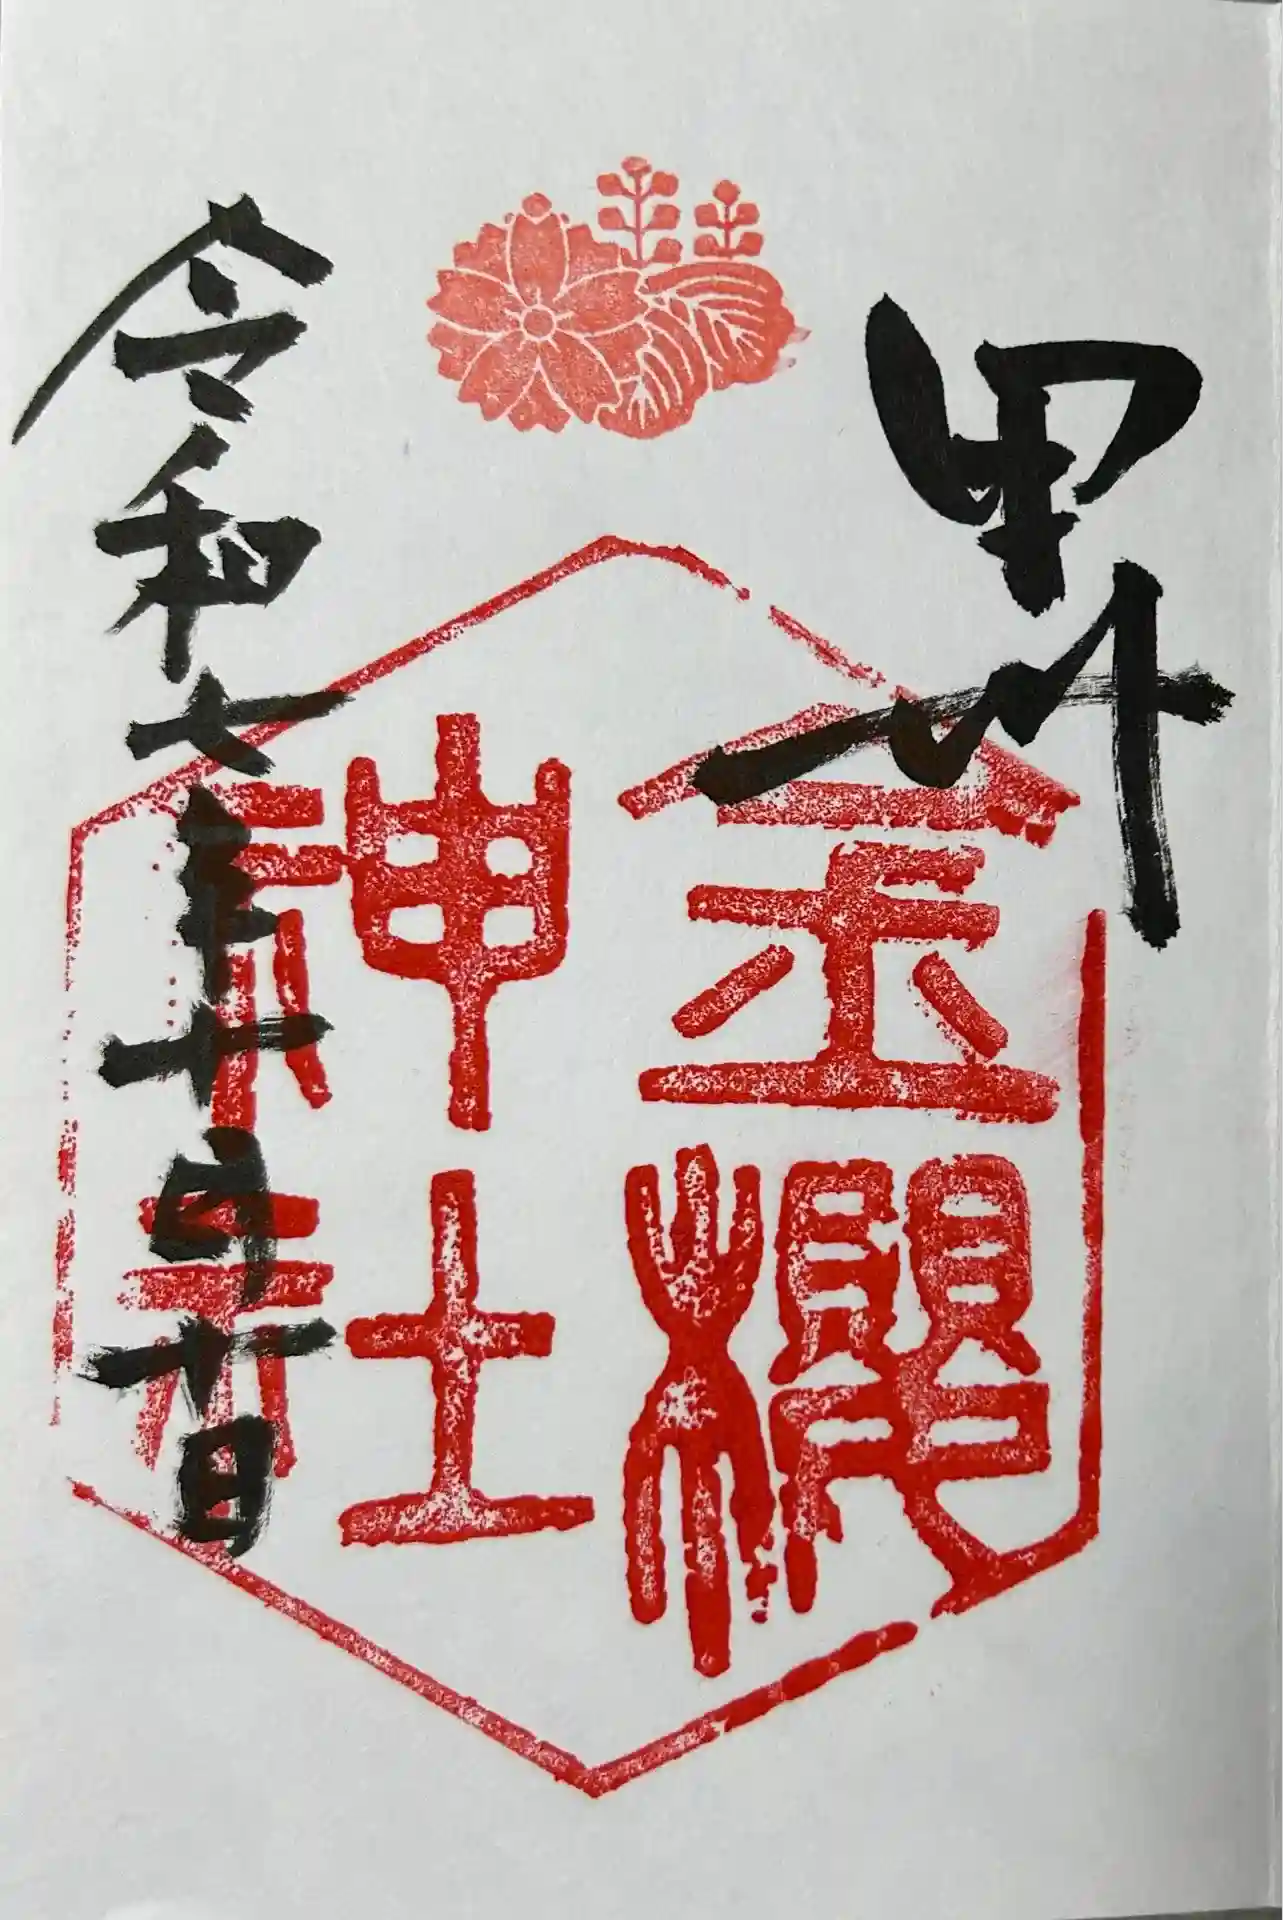 甲州
金櫻
神社
令和七年十一月十日